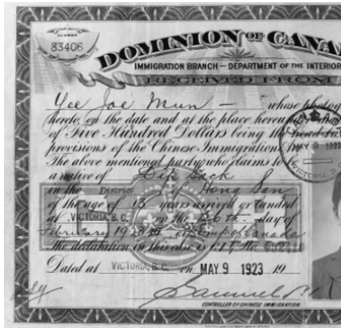 83406
DOMINION OF CANA
IMMIGRATION BRANCH — DEPARTMENT OF THE INTERIOR
RECEIVED FROM
Yee Joe Mun — whose photog
hereto, on the date and at the place hereu
of Five Hundred Dollars being the head
provisions of the Chinese Immigration
The above mentioned party who claims to be
a native of Sack
in the District Hong San
of the age of 15 years arrived or landed
at VICTORIA, B.C. on the 26th day of
February 1923 Emp of Canada
The declaration in this case is C.I.
Dated at VICTORIA, B.C. on MAY 9 1923 19
CONTROLLER OF CHINESE IMMIGRATION